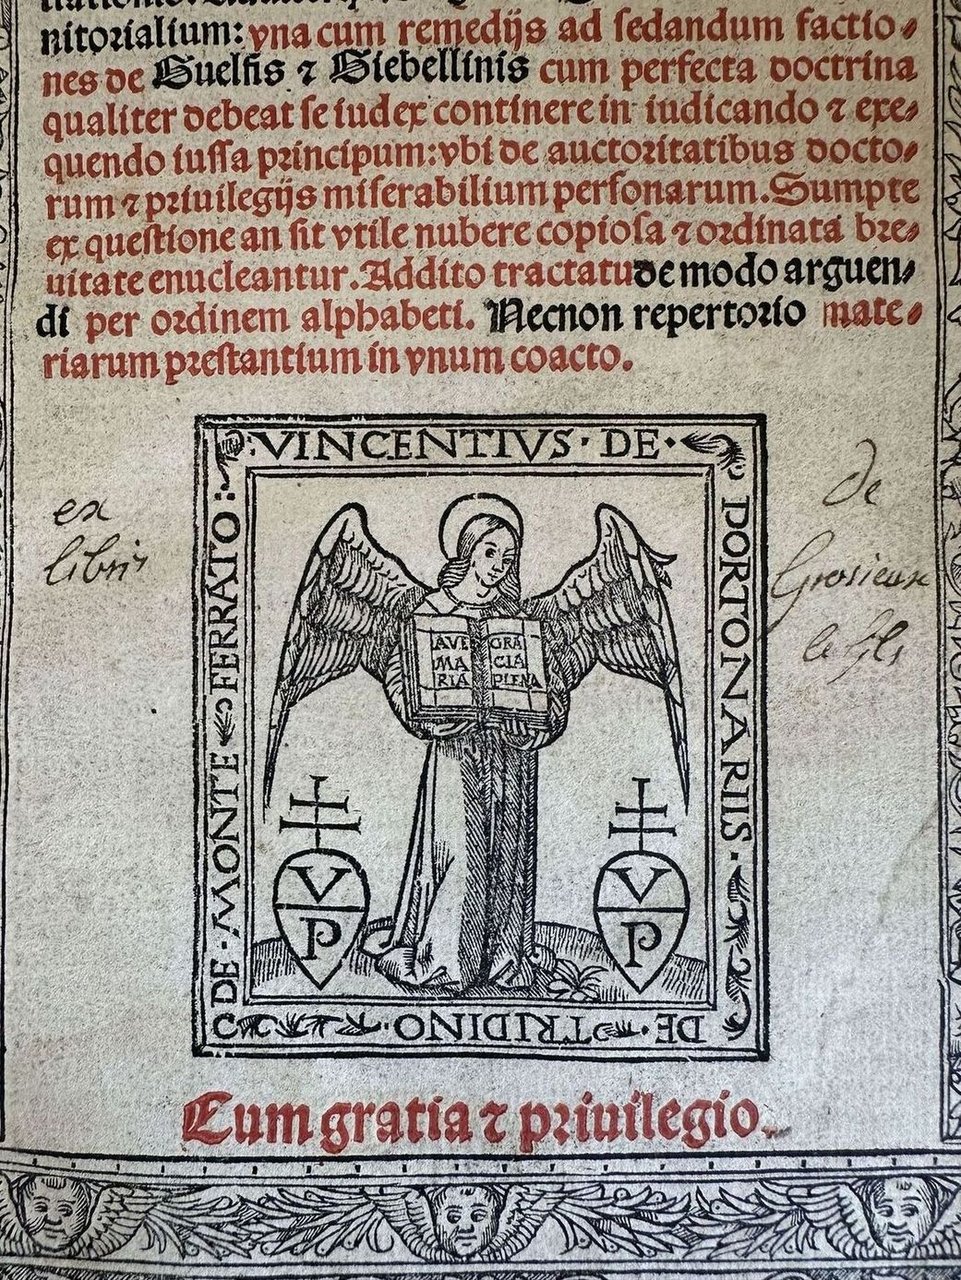 nitorialium: vna cum remedijs ad sedandum factio⸗
nes de Guelfis ⁊ Giebellinis cum perfecta doctrina
qualiter debeat se iudex continere in iudicando ⁊ exe⸗
quendo iussa principum: vbi de auctoritatibus docto⸗
rum ⁊ priuilegijs miserabilium personarum. Sumpte
ex questione an sit vtile nubere copiosa ⁊ ordinata bre⸗
uitate enucleantur. Addito tractatu de modo arguen⸗
di per ordinem alphabeti. Necnon repertorio mate⸗
riarum prestantium in vnum coacto.
VINCENTIVS · DE ·
PORTONARIIS ·
DE · TRIDINO ·
DE · MONTE FERRATO :
ex
libris
de
AVE GRA
MA CIA
RIA PLENA
V
P
V
P
Cum gratia ⁊ priuilegio.